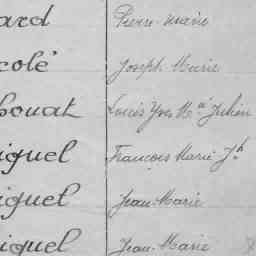 ard Pierre-Marie
colé Joseph Marie
bouat Louis Yves Mie Julien
iguel François Marie Jh
iguel Jean-Marie
iguel Jean-Marie